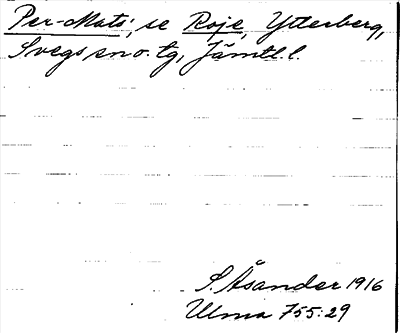 Per-Mats', se Roje, Ytterberg,
Svegs sn o. tg, Jämtl. l.
S. Åsander 1916
Ulma 755:29